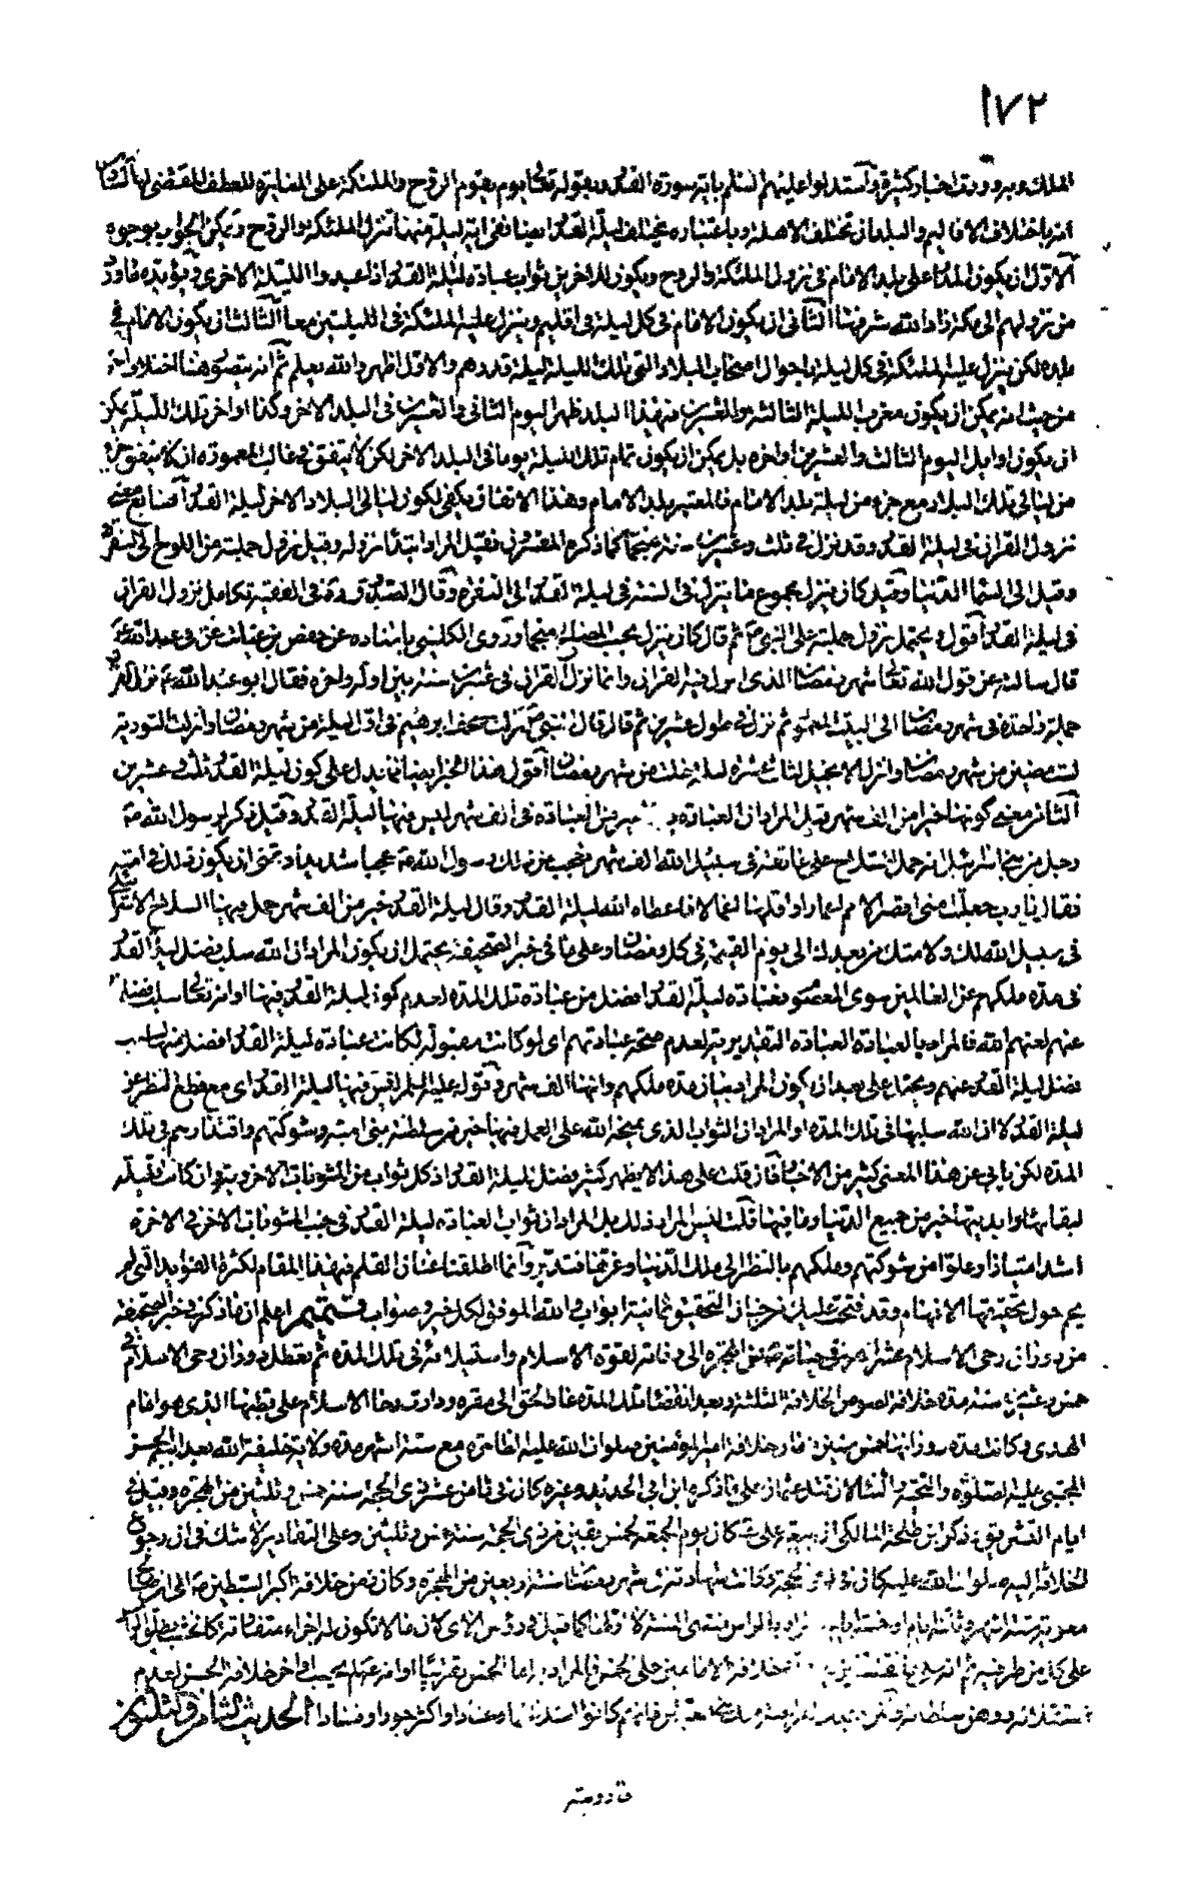 ١٧٢
الملك وبه وردت اخبار كثيرة واستدلوا عليهم السلم بآية سورة القدر وبقوله تعالى يوم يقوم الروح والملئكة على المغايرة للعطف المقتضى لها
انه باختلاف الاقاليم والبلدان تختلف الاهلة وباعتباره يختلف ليلة القدر ايضا ففى اية ليلة منهما تنزل الملئكة والروح ويمكن الجواب بوجوه
الاول ان يكون المدار على بلد الامام فى نزول الملئكة والروح ويكون للاخرين ثواب عبادة ليلة القدر اذا عبدوا الليلة الاخرى ويؤيده
من نزولهم الى مكة زادها الله شرفا الثانى ان يكون الامام فى كل ليلة فى اقليم وينزل عليه الملئكة فى الليلتين معا الثالث ان يكون الامام فى
بلده لكن ينزل عليه الملئكة فى كل ليلة باحوال اصحاب البلاد التى تلك الليلة ليلة قدرهم والاول اظهر والله يعلم ثم انه يتصور هنا اختلاف اخر
من حيث انه يمكن ان يكون مغرب الليلة الثالثة والعشرين من هذا البلد ظهر اليوم الثانى والعشرين فى البلد الاخر وكذا اواخر تلك الليلة يمكن
ان يكون اوايل اليوم الثالث والعشرين او اخره بل يمكن ان يكون تمام تلك الليلة يوما فى البلد الاخر لكن لا يتفق فى غالب المعمورة ان لا يتفق جزء
من ليالى تلك البلاد مع جزء من ليلة بلد الامام فالمعتبر بلد الامام وهذا الاتفاق يكفى لكون ليالى البلاد الاخر ليلة القدر ايضا
نزول القران فى ليلة القدر وقد نزل فى ثلث وعشرين سنة منجما كما ذكره المفسرون فقيل المراد ابتداء نزوله وقيل نزول جملته من اللوح الى السفرة
وقيل الى السماء الدنيا وقيل كان ينزل مجموع ما ينزل فى السنة فى ليلة القدر الى السفرة وقال الصدوق فى العقيدة تكامل نزول القران
فى ليلة القدر اقول ويحتمل نزول جملته على النبى ثم قال كان ينزل بحسب المصلحة منجما وروى الكلينى باسناده عن حفص بن غياث عن ابى عبد الله
قال سالته عن قول الله تعالى شهر رمضان الذى انزل فيه القران وانما نزل القران فى عشرين سنة بين اوله واخره فقال ابو عبد الله نزل القران
جملة واحدة فى شهر رمضان الى البيت المعمور ثم نزل فى طول عشرين ثم قال قال النبى نزلت صحف ابرهيم فى اول ليلة من شهر رمضان وانزلت التورية
لست مضين من شهر رمضان وانزل الانجيل لثلث عشرة ليلة خلت من شهر رمضان اقول هذا الخبر ايضا مما يدل على كون ليلة القدر ثلث وعشرين
الثامن معنى كونها خيرا من الف شهر فقيل المراد ان العبادة فيها خير من العبادة فى الف شهر ليس فيها ليلة القدر وقيل ذكر لرسول الله
رجل من بنى اسرائيل انه حمل السلاح على عاتقه فى سبيل الله الف شهر فعجب من ذلك رسول الله عجبا شديدا وتمنى ان يكون ذلك فى امته
فقال يا رب جعلت امتى اقصر الامم اعمارا واقلها اعمالا فاعطاه الله ليلة القدر وقال ليلة القدر خير من الف شهر حمل فيها السلاح الاسرائيلى
فى سبيل الله لك ولامتك من بعدك الى يوم القيمة فى كل رمضان وعلى ما فى خبر الصحيفة يحتمل ان يكون المراد ان الله سلب فضل ليلة القدر
فى مدة ملكهم عن العالمين سوى المعصوم فعبادة ليلة القدر افضل من عبادة تلك المدة لعدم كون ليلة القدر فيها او انه تعالى سلب فضلها
عنهم لعنهم الله فالمراد بالعبادة العبادة التقديرية لعدم صحة عبادتهم اى لو كانت مقبولة لكانت عبادة ليلة القدر افضل منها لسلب
فضل ليلة القدر عنهم ويحتمل على بعد ان يكون المراد بيان مدة ملكهم وانها الف شهر وقوله عليه السلم ليس فيها ليلة القدر اى مع قطع النظر عن
ليلة القدر لا ان الله سلبها فى تلك المدة او المراد ان الثواب الذى يمنحه الله على العمل فيها خير من سلطنة بنى امية وشوكتهم واقتدارهم فى تلك
المدة لكن يابى عن هذا المعنى كثير من الاخبار فان قلت على هذا لا يظهر كثير فضل لليلة القدر اذ كل ثواب من المثوبات الاخروية وان كانت قليلة
لبقائها وابديتها خير من جميع الدنيا وما فيها قلت ليس المراد ذلك بل المراد ان ثواب العبادة ليلة القدر فى جنب المثوبات الاخر فى الاخرة
اشد امتيازا وعلوا من شوكتهم وملكهم بالنظر الى ملك الدنيا وعزتها فتدبر وانما اطلقنا عنان القلم فى هذا المقام لكثرة الفوايد التى لم
يحم حول تحقيقها الافهام وقد فتحت عليك من جنان التحقيق ثمانية ابواب والله الموفق لكل خير وصواب تتميم اعلم ان ما ذكر فى خبر الصحيفة
من دوران رحى الاسلام عشرا هو فى حياته من الهجرة الى وفاته لقوة الاسلام واستيلائه فى تلك المدة ثم تعطل دوران رحى الاسلام فى
خمس وعشرين سنة مدة خلافة لصوص الخلافة الثلثة وبعد انقضاء تلك المدة عاد الحق الى مقره ودارت رحا الاسلام على قطبها الذى هو امام
الهدى وكانت مدة دورانها خمس سنين مدة خلافة امير المؤمنين صلوات الله عليه الظاهرة مع ستة اشهر مدة ولاية خليفة الله بعده الحسن
المجتبى عليه الصلوة والتحية والثنا لان قتل عثمان على ما ذكره ابن ابى الحديد وغيره كان فى ثامن عشر ذى الحجة سنة خمس وثلثين من الهجرة وقيل فى
ايام التشريق ذكر ابن طلحة المالكى ان بيعة على كان يوم الجمعة لخمس بقين من ذى الحجة سنة خمس وثلثين وعلى التقادير لا شك فى ان رجوع
الخلافة اليه صلوات الله عليه كان فى ذى الحجة وكانت شهادته فى شهر رمضان سنة اربعين من الهجرة وكان زمن خلافة اكبر السبطين الى ان صالح
معوية ستة اشهر وثلثة ايام او خمسة ايام
الحديث الثامن والثلثون
ما رويته